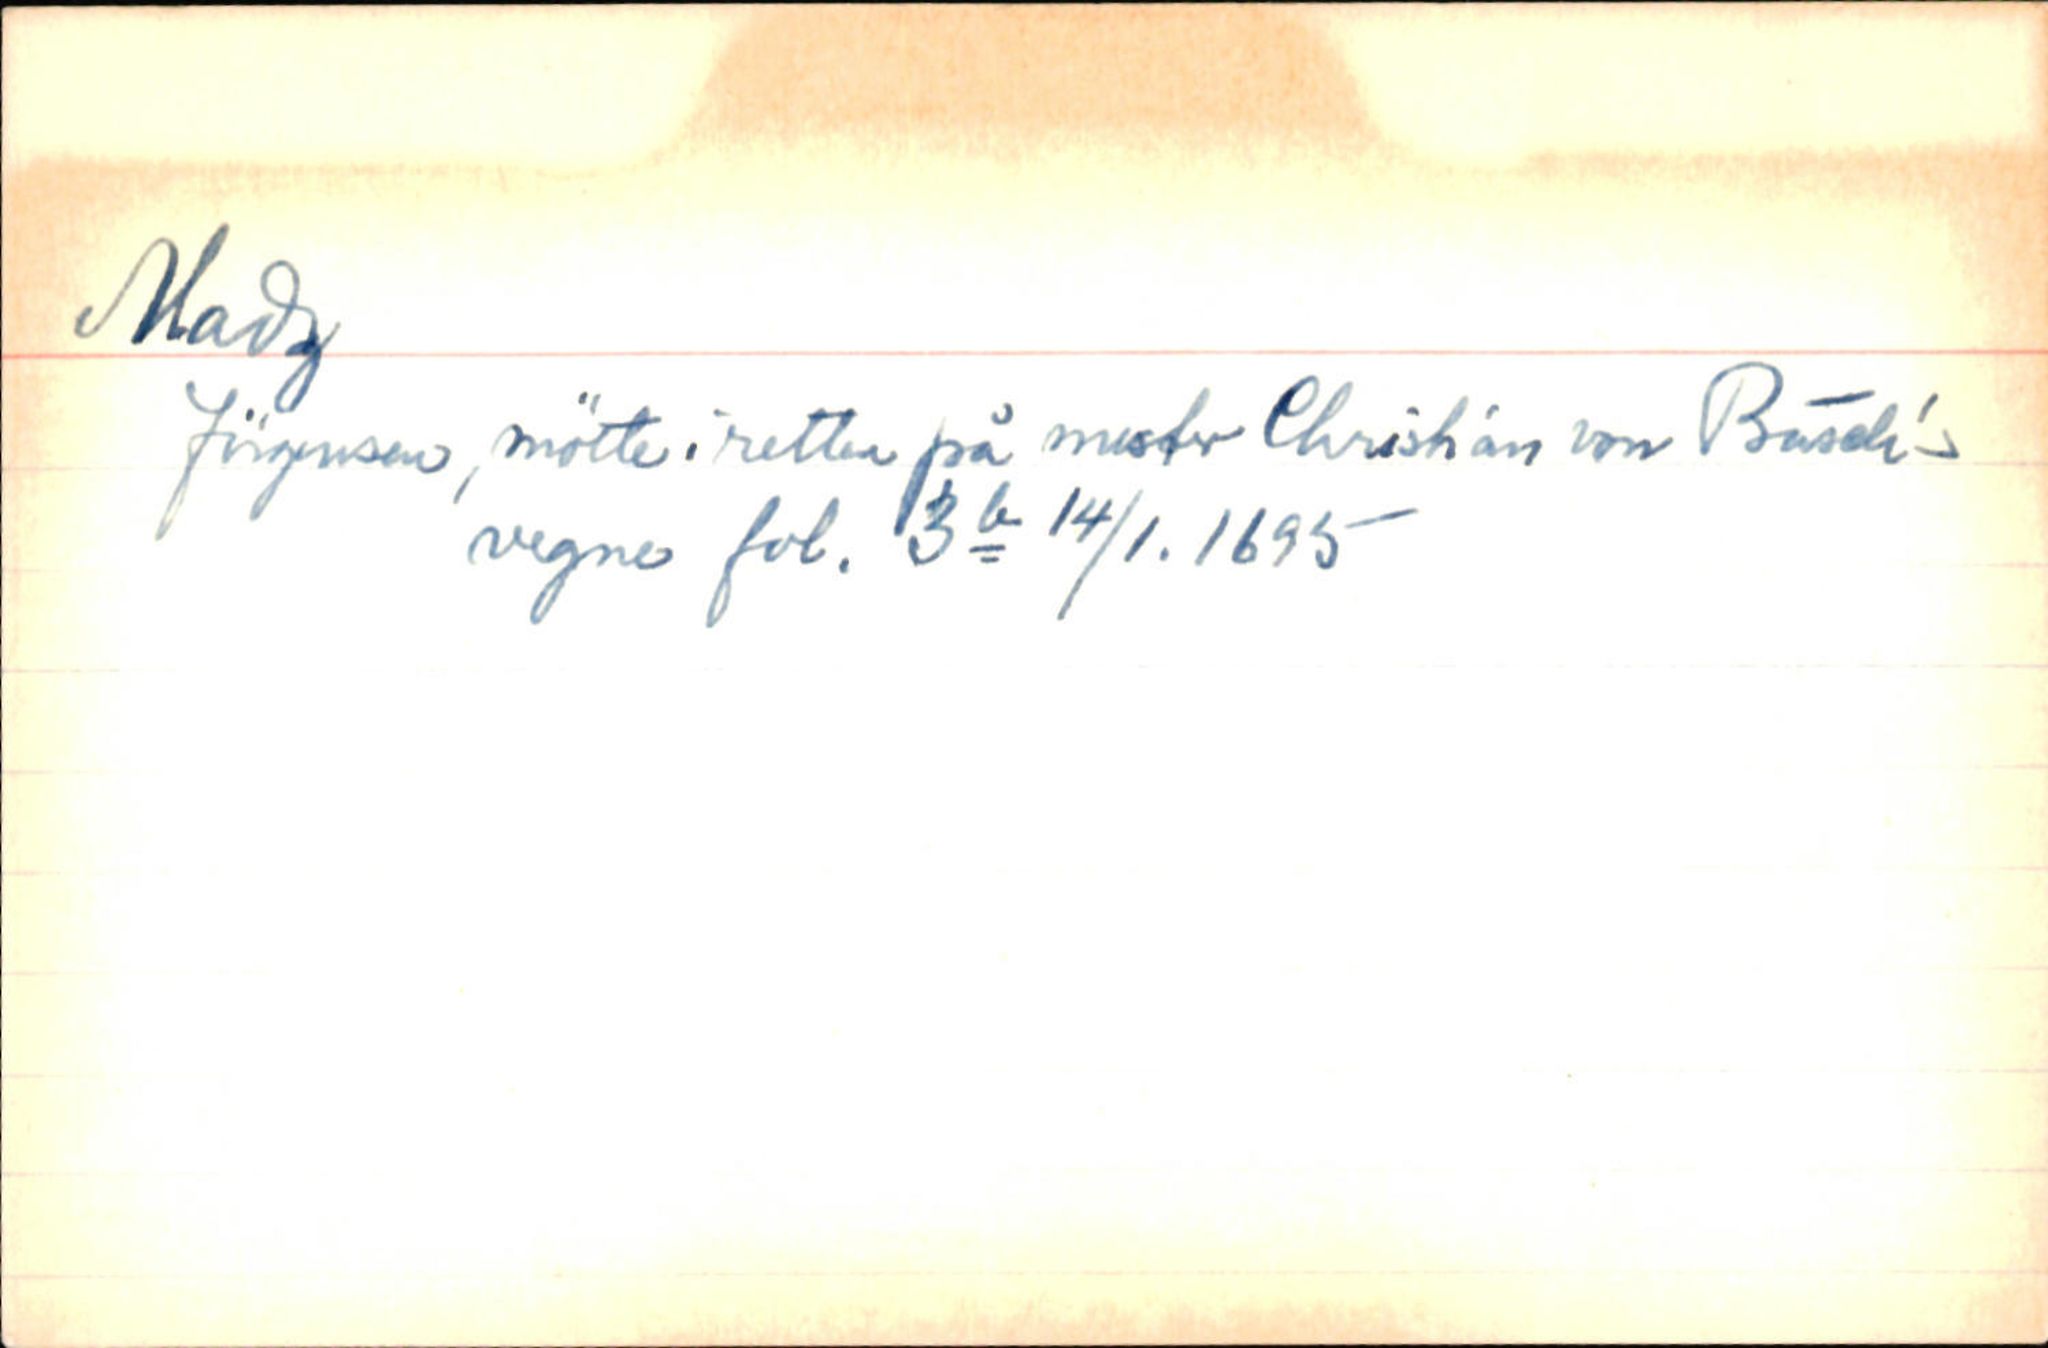 Madz
Jörgensen, mötte i retten på mester Christian von Busch's
vegne fol. 3 b 14/1. 1695